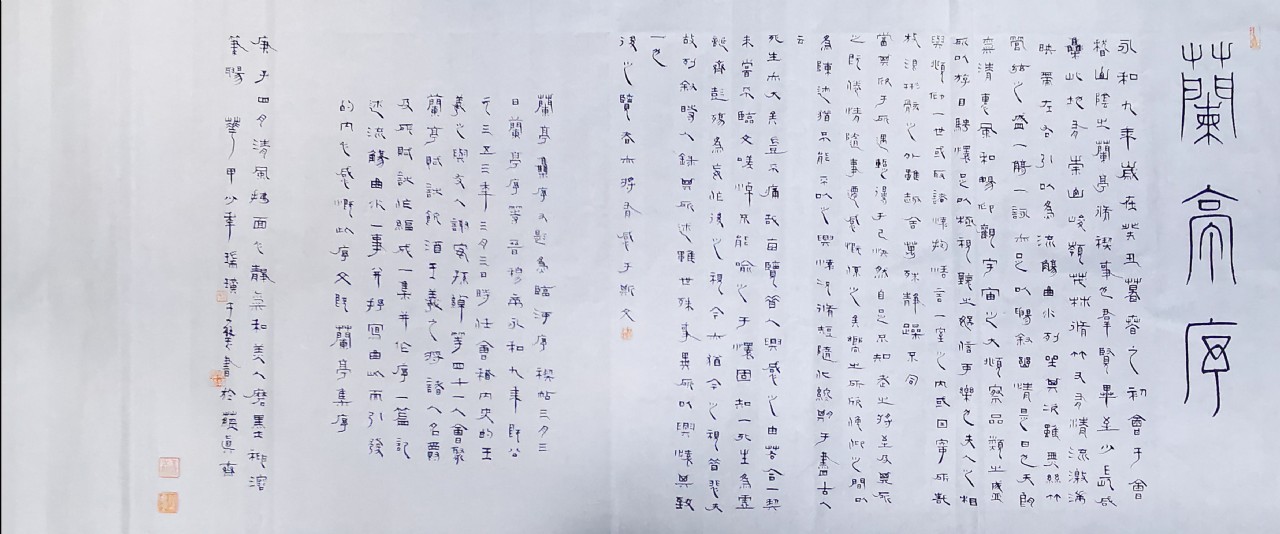 蘭亭序
永和九年歲在癸丑暮春之初會于會
稽山陰之蘭亭脩稧事也羣賢畢至少長咸
集此地有崇山峻領茂林脩竹又有清流激湍
映帶左右引以為流觴曲水列坐其次雖無絲竹
管絃之盛一觴一詠亦足以暢叙幽情是日也天朗
氣清惠風和暢仰觀宇宙之大俯察品類之盛
所以遊目騁懷足以極視聽之娛信可樂也夫人之相
與俯仰一世或取諸懷抱悟言一室之內或因寄所託
放浪形骸之外雖趣舍萬殊静躁不同
當其欣于所遇暫得于己快然自足不知老之將至及其所
之既倦情隨事遷感慨係之矣向之所欣俛仰之間以
為陳迹猶不能不以之興懷況脩短隨化終期于盡古人
云
死生亦大矣豈不痛哉每覽昔人興感之由若合一契
未嘗不臨文嗟悼不能喻之于懷固知一死生為虛
誕齊彭殤為妄作後之視今亦猶今之視昔悲夫
故列叙時人錄其所述雖世殊事異所以興懷其致
一也
後之覽者亦將有感于斯文
蘭亭集序又題為臨河序禊帖三月三
日蘭亭序等晉穆帝永和九年即公
元三五三年三月三日時任會稽内史的王
羲之與友人謝安孫綽等四十一人會聚
蘭亭賦詩飲酒王羲之將諸人名爵
及所賦詩作編成一集并作序一篇記
述流觴曲水一事并抒寫由此而引發
的内心感慨此序文既蘭亭集序
庚子四月清風拂面心靜氣和美人磨墨士桓溶
筆賜 華甲少年瑞璜于 書於 真齋